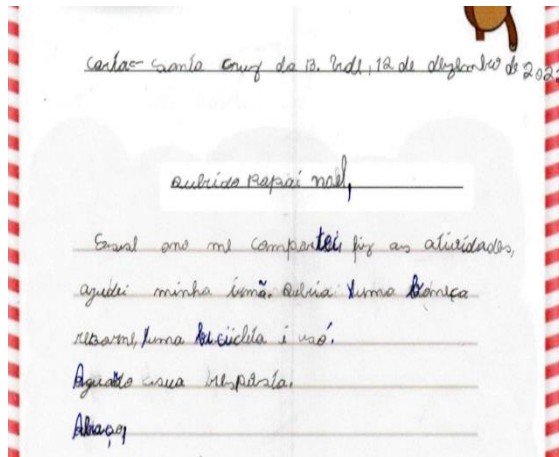 carta- Santa Cruz da B. Vdl, 12 de dezembro de 202
Quirido Papai noel,
Esssl ano me comportei fiz as atividades,
ajudei minha irmã. Quiria uma Boneca
reborne, uma bicicleta i usó.
Aguardo asua resposta.
Abraço,